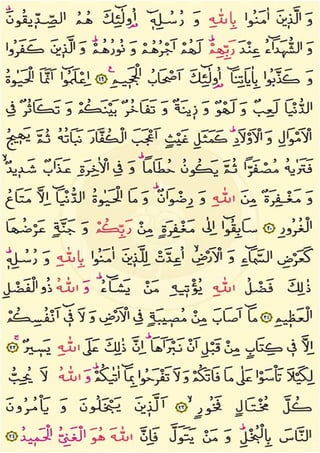 وَ الَّذٖينَ اٰمَنُوا بِاللّٰهِ وَ رُسُلِهٖٓ اُو۬لٰٓئِكَ هُمُ الصِّدّٖيقُونَۗ
وَ الشُّهَدَٓاءُ عِنْدَ رَبِّهِمْۜ لَهُمْ اَجْرُهُمْ وَ نُورُهُمْۜ وَ الَّذٖينَ كَفَرُوا
وَ كَذَّبُوا بِاٰيَاتِنَٓا اُو۬لٰٓئِكَ اَصْحَابُ الْجَحٖيمِ۟ ﴿١٩﴾ اِعْلَمُٓوا اَنَّمَا الْحَيٰوةُ
الدُّنْيَا لَعِبٌ وَ لَهْوٌ وَ زٖينَةٌ وَ تَفَاخُرٌ بَيْنَكُمْ وَ تَكَاثُرٌ فِى
الْاَمْوَالِ وَ الْاَوْلَادِۜ كَمَثَلِ غَيْثٍ اَعْجَبَ الْكُفَّارَ نَبَاتُهُ ثُمَّ يَهٖيجُ
فَتَرٰيهُ مُصْفَرًّا ثُمَّ يَكُونُ حُطَامًاۜ وَ فِى الْاٰخِرَةِ عَذَابٌ شَدٖيدٌۙ
وَ مَغْفِرَةٌ مِنَ اللّٰهِ وَ رِضْوَانٌۜ وَ مَا الْحَيٰوةُ الدُّنْيَٓا اِلَّا مَتَاعُ
الْغُرُورِ ﴿٢٠﴾ سَابِقُٓوا اِلٰى مَغْفِرَةٍ مِنْ رَبِّكُمْ وَ جَنَّةٍ عَرْضُهَا
كَعَرْضِ السَّمَٓاءِ وَ الْاَرْضِۙ اُعِدَّتْ لِلَّذٖينَ اٰمَنُوا بِاللّٰهِ وَ رُسُلِهٖۜ
ذٰلِكَ فَضْلُ اللّٰهِ يُؤْتٖيهِ مَنْ يَشَٓاءُۜ وَ اللّٰهُ ذُو الْفَضْلِ
الْعَظٖيمِ ﴿٢١﴾ مَٓا اَصَابَ مِنْ مُصٖيبَةٍ فِى الْاَرْضِ وَ لَا فٖٓى اَنْفُسِكُمْ
اِلَّا فٖى كِتَابٍ مِنْ قَبْلِ اَنْ نَبْرَاَهَاۜ اِنَّ ذٰلِكَ عَلَى اللّٰهِ يَسٖيرٌۚ ﴿٢٢﴾
لِكَيْلَا تَاْسَوْا عَلٰى مَا فَاتَكُمْ وَ لَا تَفْرَحُوا بِمَٓا اٰتٰيكُمْۜ وَ اللّٰهُ لَا يُحِبُّ
كُلَّ مُخْتَالٍ فَخُورٍۙ ﴿٢٣﴾ اَلَّذٖينَ يَبْخَلُونَ وَ يَاْمُرُونَ
النَّاسَ بِالْبُخْلِۜ وَ مَنْ يَتَوَلَّ فَاِنَّ اللّٰهَ هُوَ الْغَنِىُّ الْحَمٖيدُ ﴿٢٤﴾